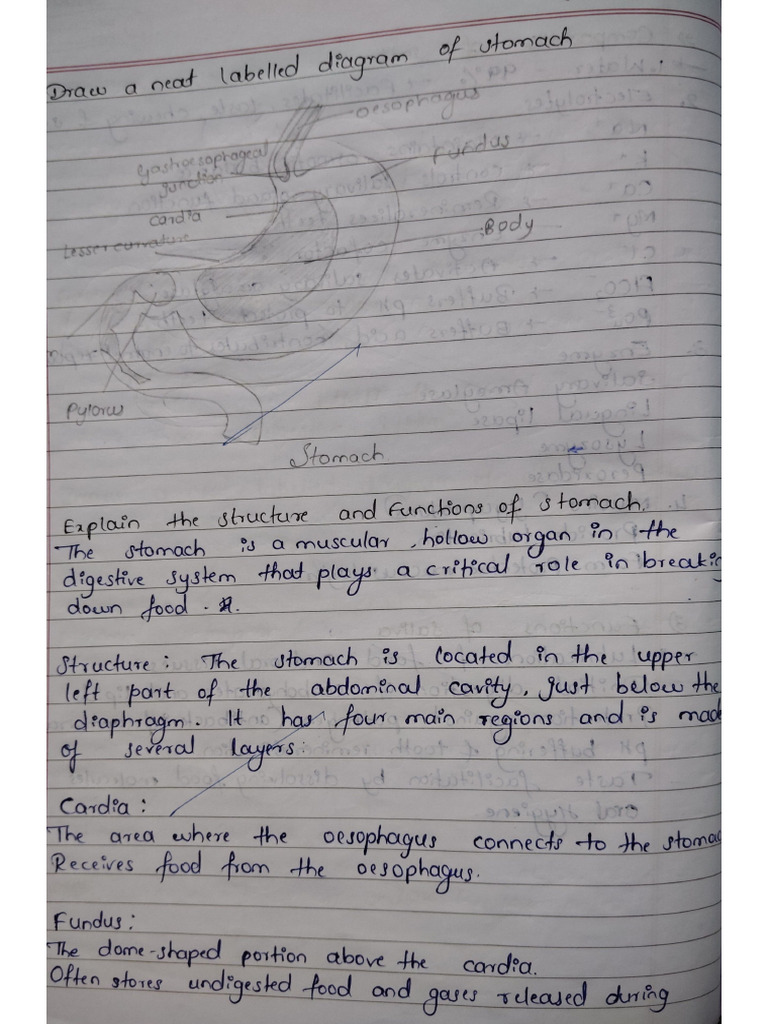 Draw a neat labelled diagram of stomach
oesophagus
Fundus
gastroesophageal
junction
cardia
Body
Lesser curvature
Pylorus
Stomach
Explain the structure and functions of stomach.
The stomach is a muscular, hollow organ in the
digestive system that plays a critical role in breakin
down food.
Structure: The stomach is located in the upper
left part of the abdominal cavity, just below the
diaphragm. It has four main regions and is made
of several layers:
Cardia:
The area where the oesophagus connects to the stomac
Receives food from the oesophagus.
Fundus:
The dome-shaped portion above the cardia.
Often stores undigested food and gases released during